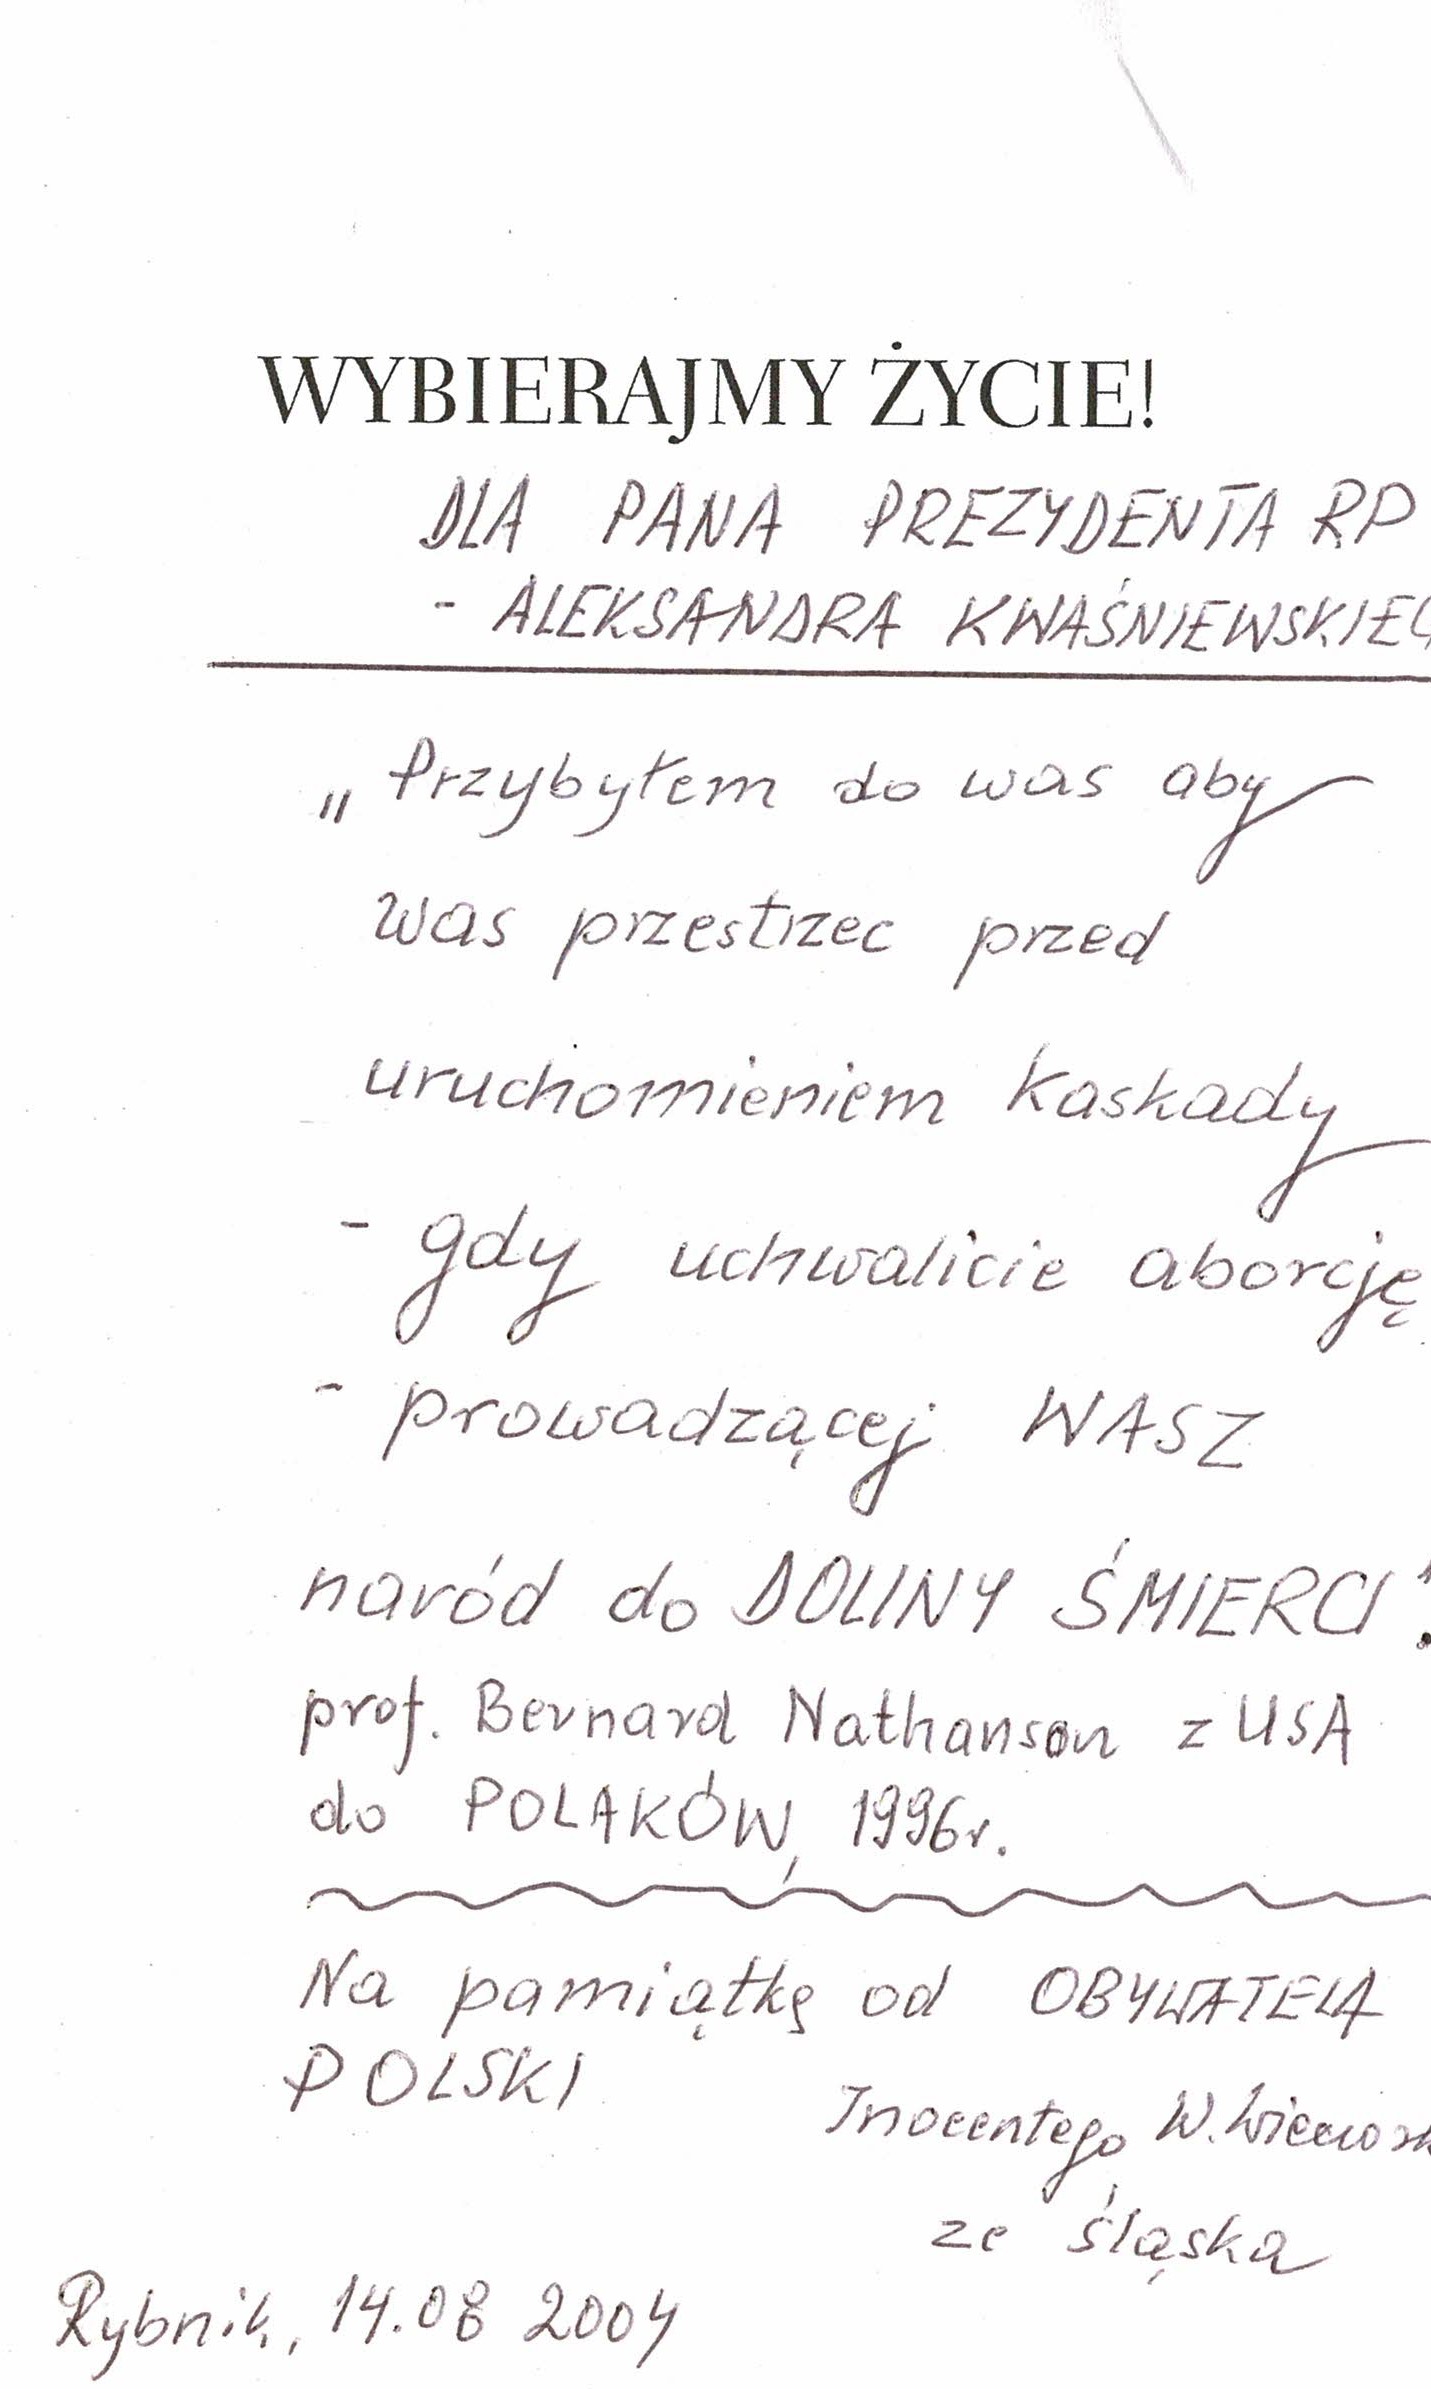 WYBIERAJMY ŻYCIE!
DLA PANA PREZYDENTA RP
- ALEKSANDRA KWAŚNIEWSKIEG
„Przybyłem do was aby
was przestrzec przed
uruchomieniem kaskady
- gdy uchwalicie aborcję
- prowadzącej WASZ
naród do DOLINY ŚMIERCI".
prof. Bernard Nathanson z USA
do POLAKÓW, 1996r.
Na pamiątkę od OBYWATELA
POLSKI
Inocentego W.
ze Śląska
Rybnik, 14.08 2004